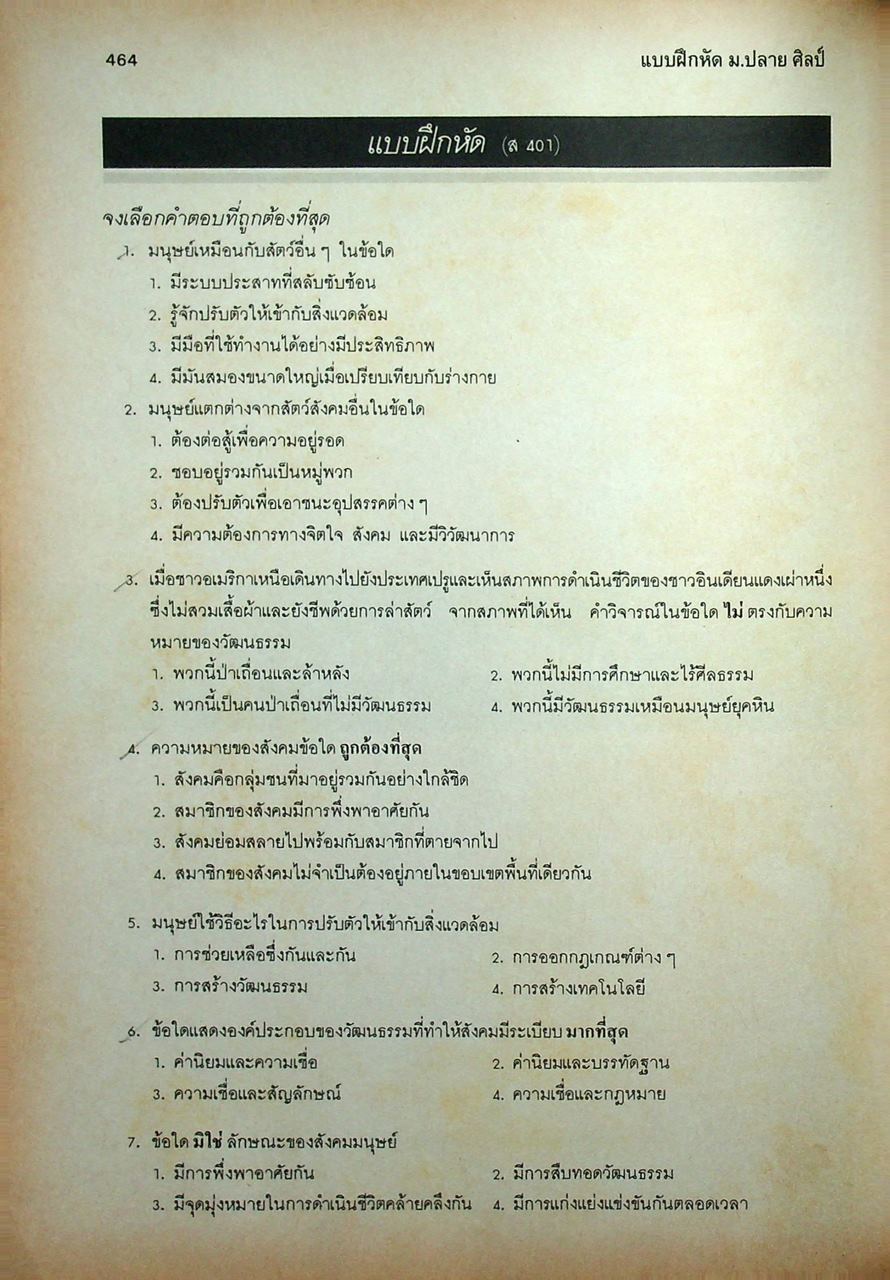 464
แบบฝึกหัด ม.ปลาย ศิลป์
แบบฝึกหัด (ส 401)
จงเลือกคำตอบที่ถูกต้องที่สุด
1. มนุษย์เหมือนกับสัตว์อื่น ๆ ในข้อใด
1. มีระบบประสาทที่สลับซับซ้อน
2. รู้จักปรับตัวให้เข้ากับสิ่งแวดล้อม
3. มีมือที่ใช้ทำงานได้อย่างมีประสิทธิภาพ
4. มีมันสมองขนาดใหญ่เมื่อเปรียบเทียบกับร่างกาย
2. มนุษย์แตกต่างจากสัตว์สังคมอื่นในข้อใด
1. ต้องต่อสู้เพื่อความอยู่รอด
2. ชอบอยู่รวมกันเป็นหมู่พวก
3. ต้องปรับตัวเพื่อเอาชนะอุปสรรคต่าง ๆ
4. มีความต้องการทางจิตใจ สังคม และมีวิวัฒนาการ
3. เมื่อชาวอเมริกาเหนือเดินทางไปยังประเทศเปรูและเห็นสภาพการดำเนินชีวิตของชาวอินเดียนแดงเผ่าหนึ่ง
ซึ่งไม่สวมเสื้อผ้าและยังชีพด้วยการล่าสัตว์ จากสภาพที่ได้เห็น คำวิจารณ์ในข้อใด ไม่ ตรงกับความ
หมายของวัฒนธรรม
1. พวกนี้ป่าเถื่อนและล้าหลัง 2. พวกนี้ไม่มีการศึกษาและไร้ศีลธรรม
3. พวกนี้เป็นคนป่าเถื่อนที่ไม่มีวัฒนธรรม 4. พวกนี้มีวัฒนธรรมเหมือนมนุษย์ยุคหิน
4. ความหมายของสังคมข้อใด ถูกต้องที่สุด
1. สังคมคือกลุ่มชนที่มาอยู่รวมกันอย่างใกล้ชิด
2. สมาชิกของสังคมมีการพึ่งพาอาศัยกัน
3. สังคมย่อมสลายไปพร้อมกับสมาชิกที่ตายจากไป
4. สมาชิกของสังคมไม่จำเป็นต้องอยู่ภายในขอบเขตพื้นที่เดียวกัน
5. มนุษย์ใช้วิธีอะไรในการปรับตัวให้เข้ากับสิ่งแวดล้อม
1. การช่วยเหลือซึ่งกันและกัน 2. การออกกฎเกณฑ์ต่าง ๆ
3. การสร้างวัฒนธรรม 4. การสร้างเทคโนโลยี
6. ข้อใดแสดงองค์ประกอบของวัฒนธรรมที่ทำให้สังคมมีระเบียบ มากที่สุด
1. ค่านิยมและความเชื่อ 2. ค่านิยมและบรรทัดฐาน
3. ความเชื่อและสัญลักษณ์ 4. ความเชื่อและกฎหมาย
7. ข้อใด มิใช่ ลักษณะของสังคมมนุษย์
1. มีการพึ่งพาอาศัยกัน 2. มีการสืบทอดวัฒนธรรม
3. มีจุดมุ่งหมายในการดำเนินชีวิตคล้ายคลึงกัน 4. มีการแก่งแย่งแข่งขันกันตลอดเวลา